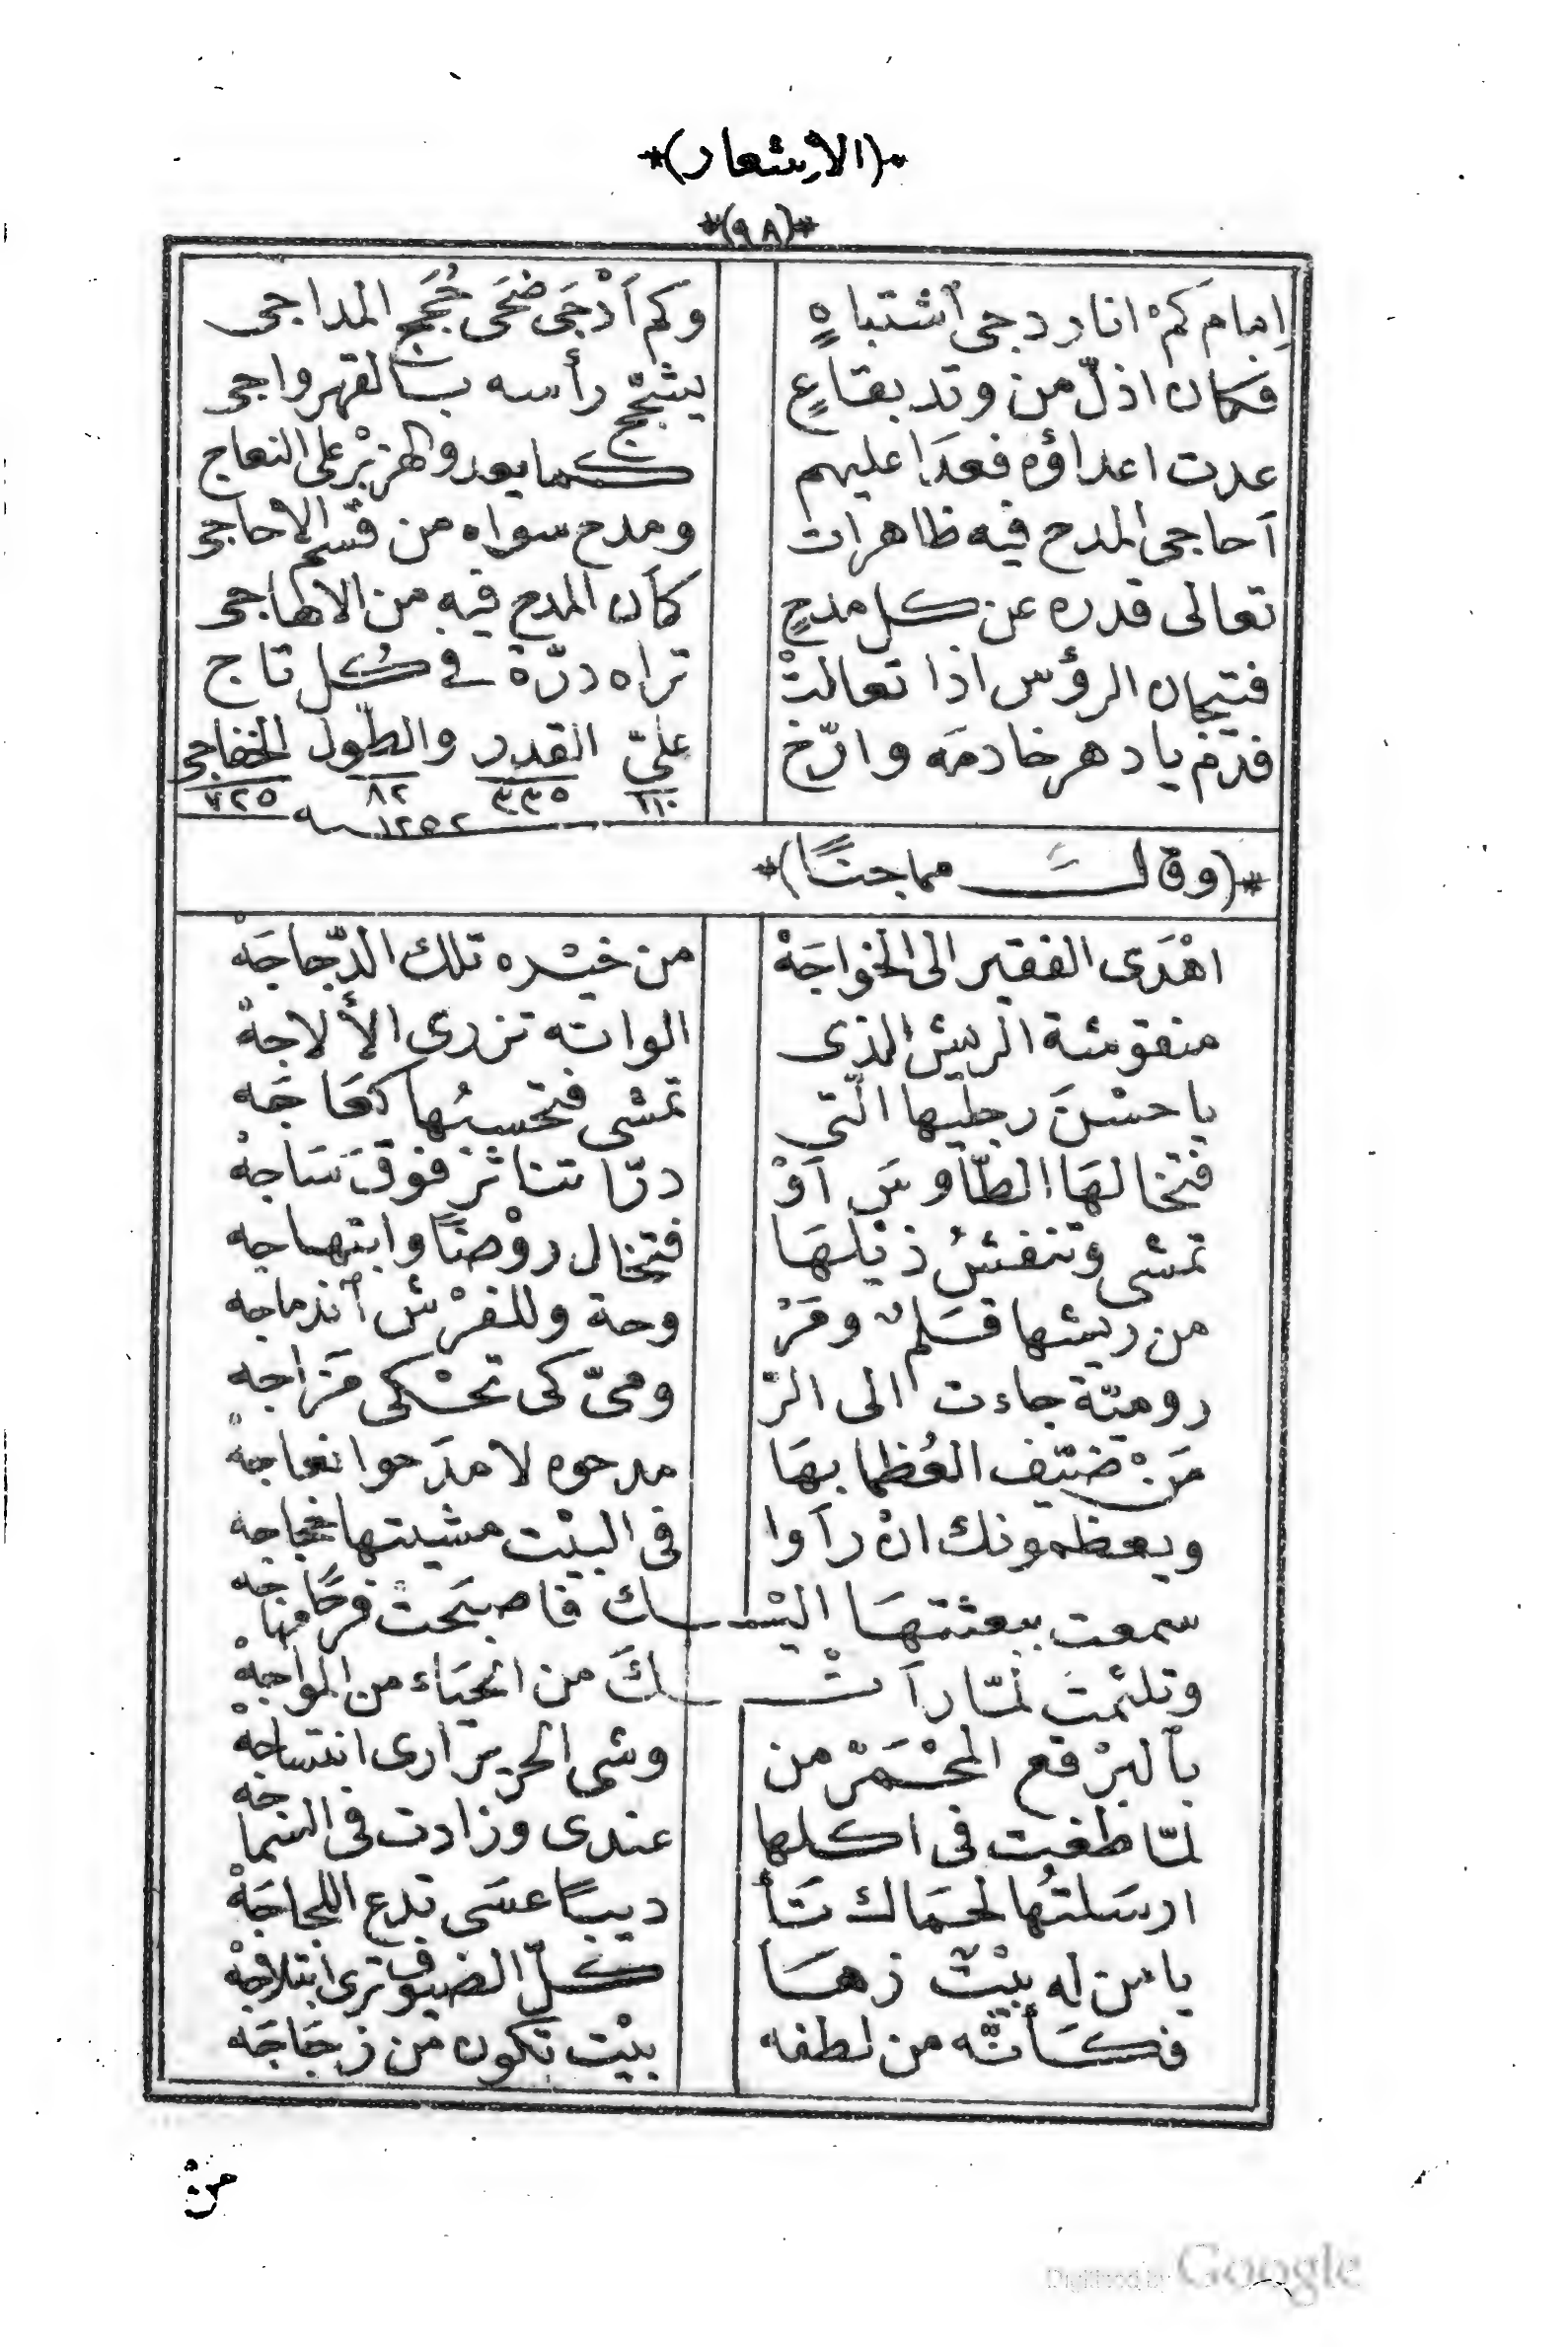 *(الاشعار)*
*(٩٨)*
إمامَ كمْ انار دجى ٱشتباهٍ وكم اَدْجَى ضحَى حُجَج المداجى
فكان اذلّ من وتد بقاعٍ يشجّج رأسه بالقهر واجى
عدت اعداؤه فعدَا عليهم كما يعدو الهزبْر على النعاج
اَحاجى المدح فيه ظاهرات ومدح سواه من قسم الاحاجى
تعالى قدره عن كل مدحٍ كأن المدح فيه من الاهاجى
فتيجان الرؤس اذا تعالتْ تراه درّة فى كُل تاج
فدُم يا دهر خادمَه وارّخ علىّ القدر والطّول الخفاجى
١١٠ ٣٣٥ ٨٢ ٧٢٥
١٢٥٢ سنه
*(وقالَ مماجنًا)*
اهْدَى الفقير الى الخواجَهْ من خيْره تلك الدّجاجَهْ
منقوشة الريش الذى الوانه تزرى الألاجهْ
يا حسْنَ رجليها الّتى تمشى فتحسبُها كعَاجَه
فتخالهَا الطّاَوسَ اَوْ درّا تناثر فوقَ سَاجهْ
تمشى وتنفشُ ذيْلهَا فتخال روْضًا وابتهاجه
من ريشها قسَلم ومَرْ وحة وللفرْش ٱندماجه
روميّة جاءت الى الرّ ومىّ كى تحْكى مَزاجه
مَنْ ضيّف العُظما بهَا مدحوه لا مدَحوا نعاجهْ
ويعظمونك انْ راَوا فى البيْت مشيتها
سمعت ببعثتهَا اليْك فاصبَحت فرحًا
وتلثمت لمّا راَتْكَ من الحيَاء من المواجهْ
بٱلبرْقع المحْمَرّ من وشى الحرير ارى انتساجهْ
لمّا طغت فى اكلها عندى وزادت فى السّماجه
ارسَلتُها لحمَاك تَأ ديبًا عسَى تدع اللّجاجَهْ
يا من له بيْتٌ زهَا كلّ الضيوف ترى ابتلاجهْ
فكأنّه من لطفه بيْت تكون من زجَاجَه
منْ
Digitized by Google